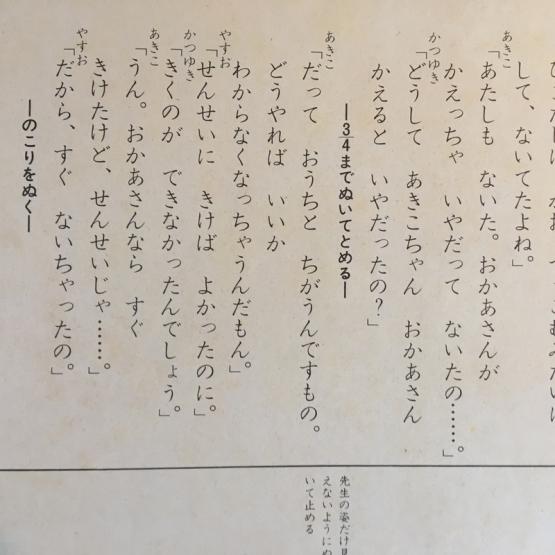 して、ないてたよね。」
あきこ
「あたしも ないた。おかあさんが
かえっちゃ いやだって ないたの……。」
かつゆき
「どうして あきこちゃん おかあさん
かえると いやだったの?」
―3/4までぬいてとめる―
あきこ
「だって おうちと ちがうんですもの。
どうやれば いいか
わからなくなっちゃうんだもん。」
やすお
「せんせいに きけば よかったのに。」
かつゆき
「きくのが できなかったんでしょう。」
あきこ
「うん。おかあさんなら すぐ
きけたけど、せんせいじゃ……。」
やすお
「だから、すぐ ないちゃったの。」
―のこりをぬく―
先生の姿だけ見
えないようにぬ
いて止める